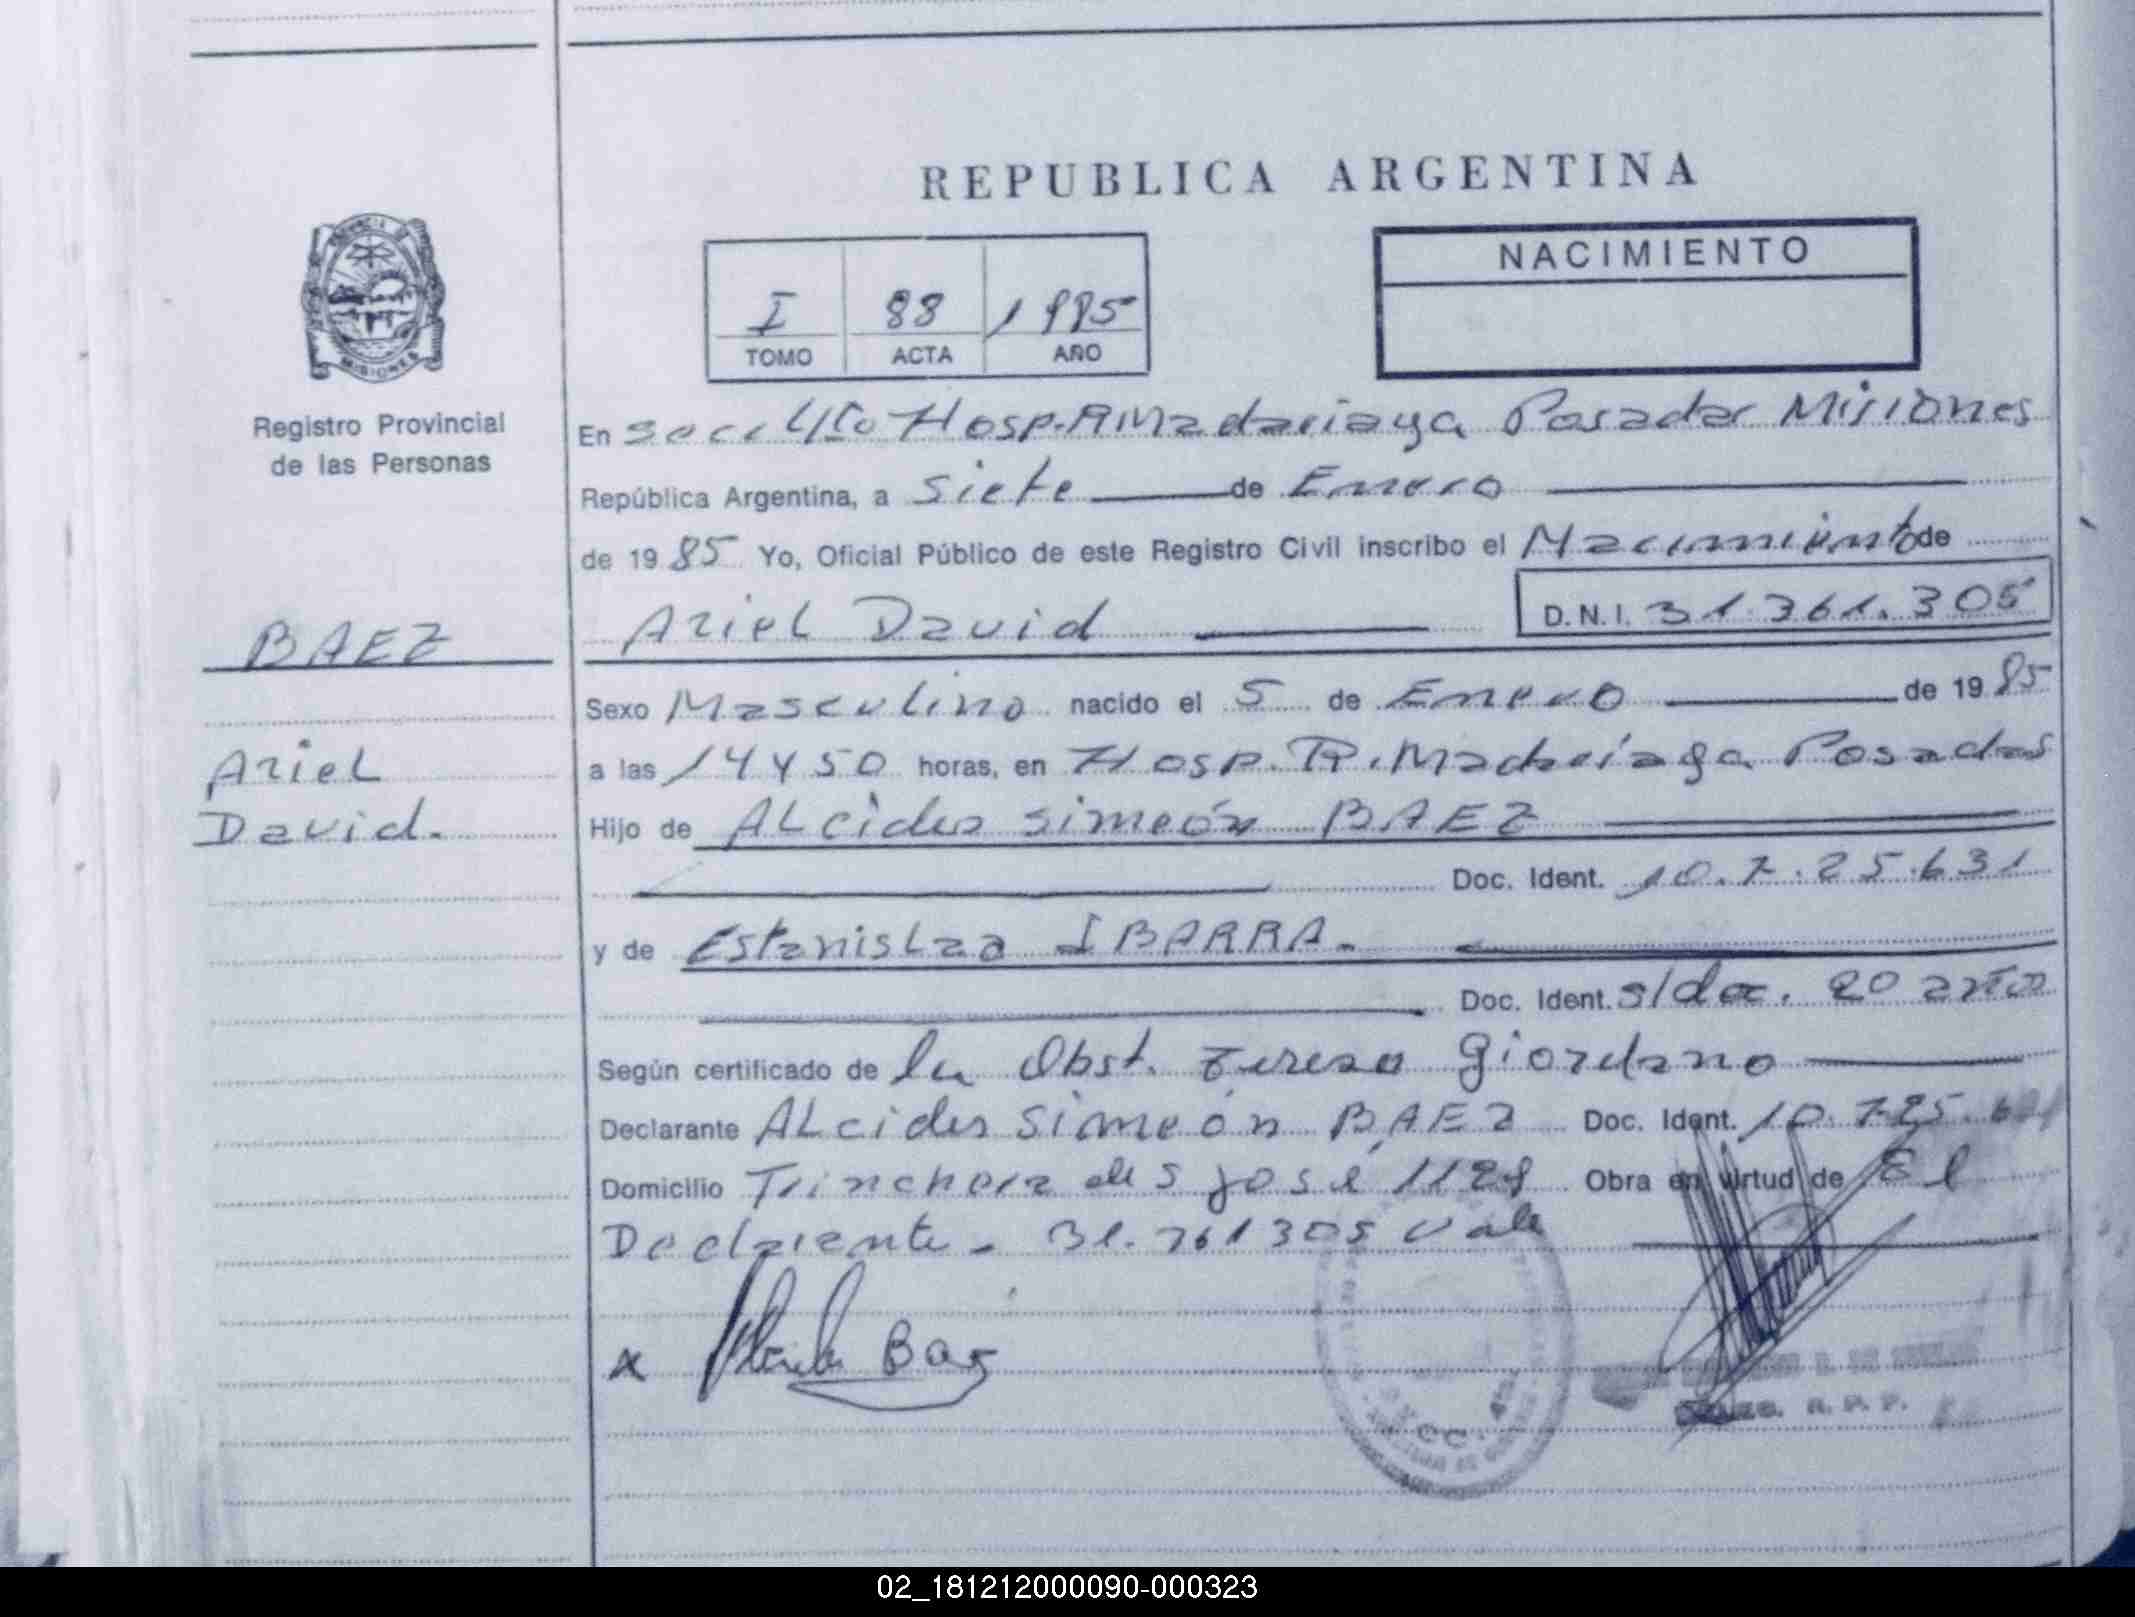 REPUBLICA ARGENTINA
NACIMIENTO
I 88 1985
TOMO ACTA AÑO
PROVINCIA DE
MISIONES
Registro Provincial
de las Personas
En secc 4ta Hosp. R Madariaga Posadas Misiones
República Argentina, a siete de Enero
de 1985 Yo, Oficial Público de este Registro Civil inscribo el Nacimiento de
Ariel David D.N.I. 31.361.305
BAEZ
Sexo Masculino nacido el 5 de Enero de 1985
Ariel
a las 14 y 50 horas, en Hosp. R. Madariaga Posadas
David.
Hijo de Alcides Simeón BAEZ
Doc. Ident. 10.725.631
y de Estanislaa IBARRA.
Doc. Ident. s/doc. 20 años
Según certificado de la Obst. Teresa Giordano
Declarante Alcides Simeón BAEZ Doc. Ident. 10.725.631
Domicilio Trinchera de S José 1128 Obra en virtud de El
Declarante - 31.361305 vale
x Baez
R. P. P.
02_181212000090-000323